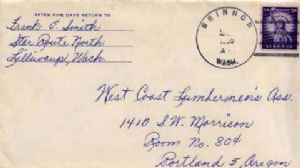 AFTER FIVE DAYS RETURN TO
Frank P. Smith
Star Route North
Lilliwaup, Wash.
BRINNON
WASH.
West Coast Lumbermen's Ass.
1410 S.W. Morrison
Room No. 804
Portland 5, Oregon